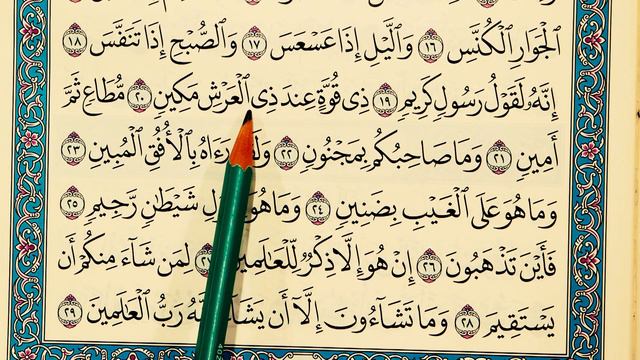 ٱلْجَوَارِ ٱلْكُنَّسِ ١٦ وَٱلَّيْلِ إِذَا عَسْعَسَ ١٧ وَٱلصُّبْحِ إِذَا تَنَفَّسَ ١٨
إِنَّهُۥ لَقَوْلُ رَسُولٍ كَرِيمٍ ١٩ ذِى قُوَّةٍ عِندَ ذِى ٱلْعَرْشِ مَكِينٍ ٢٠ مُّطَاعٍ ثَمَّ
أَمِينٍ ٢١ وَمَا صَاحِبُكُم بِمَجْنُونٍ ٢٢ رَءَاهُ بِٱلْأُفُقِ ٱلْمُبِينِ ٢٣
وَمَا هُوَ عَلَى ٱلْغَيْبِ بِضَنِينٍ ٢٤ وَمَا هُوَ شَيْطَٰنٍ رَّجِيمٍ ٢٥
فَأَيْنَ تَذْهَبُونَ ٢٦ إِنْ هُوَ إِلَّا ذِكْرٌ لِّلْعَٰلَمِينَ ٢٧ لِمَن شَآءَ مِنكُمْ أَن
يَسْتَقِيمَ ٢٨ وَمَا تَشَآءُونَ إِلَّآ أَن يَشَآءَ رَبُّ ٱلْعَٰلَمِينَ ٢٩